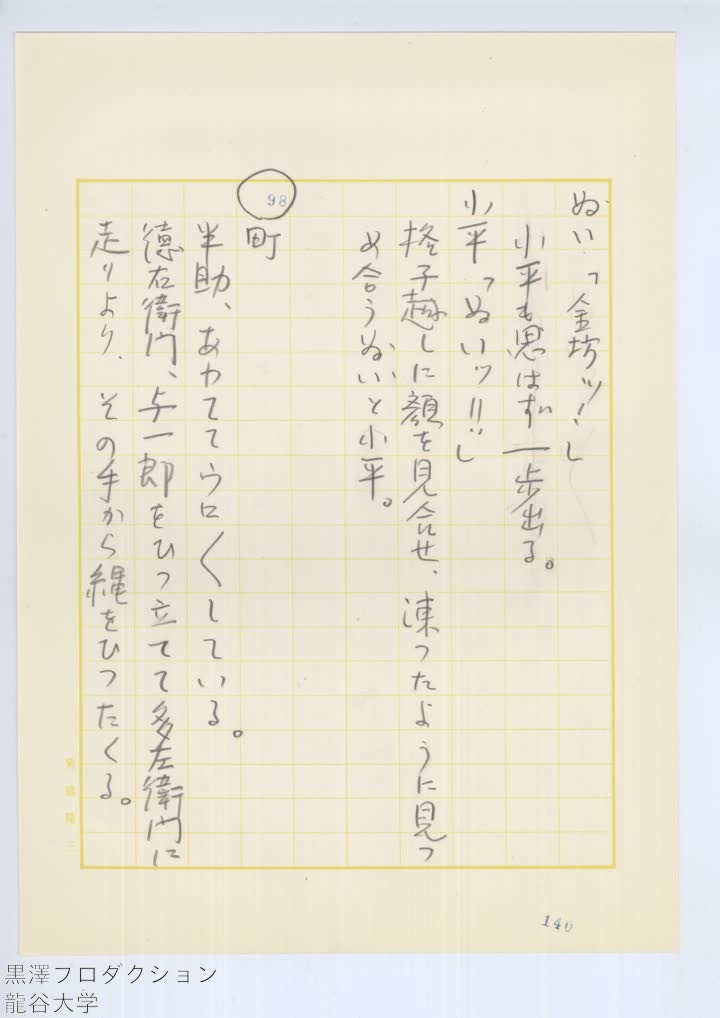 ぬい「金坊ッ！」
小平も思はず一歩出る。
小平「ぬいッ!!」
格子越しに顔を見合せ、凍つたように見つ
め合うぬいと小平。
98
町
半助、あわててウロ〱している。
德右衛門、与一郎をひつ立てて多左衛門に
走りより、その手から縄をひつたくる。
140
黒澤プロダクション
龍谷大学